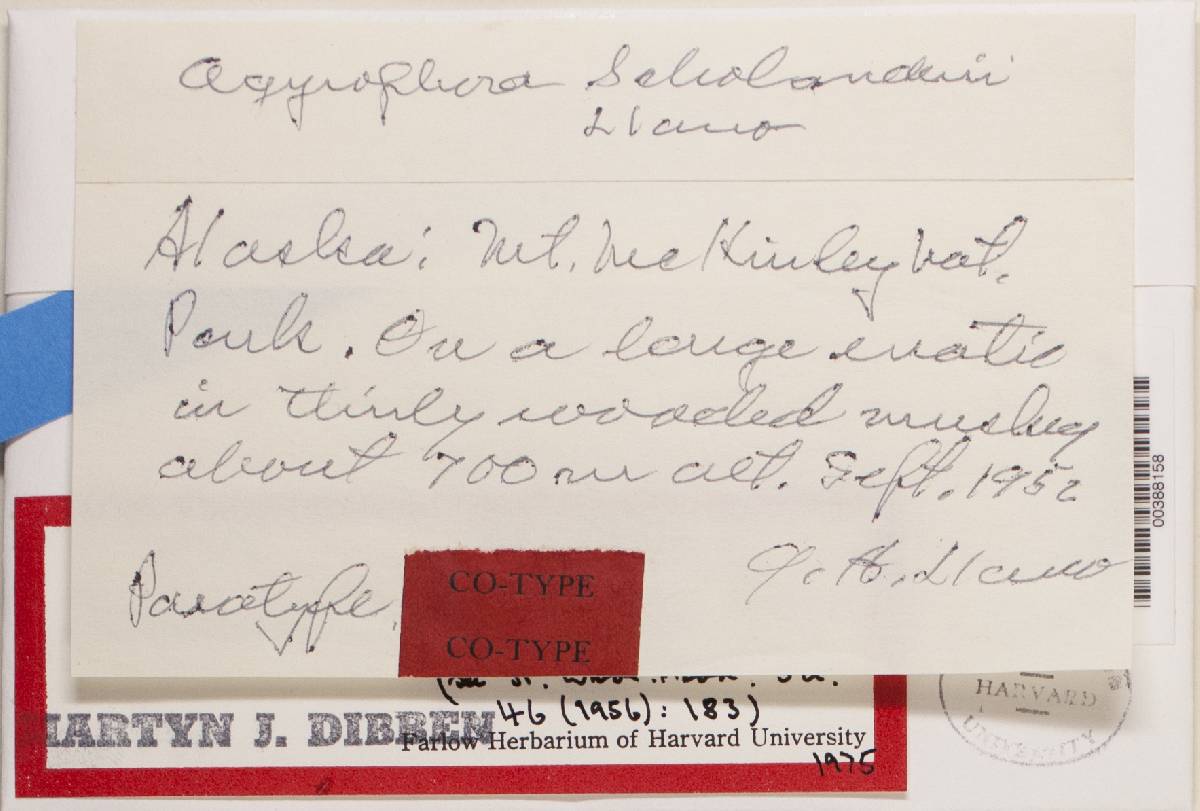 Agyrophora Scholanderi
Llano
Alaska: Mt. McKinley Nat.
Park. On a large erratic
in thinly wooded muskeg
about 700 m alt. Sept. 1952
G. A. Llano
Paratype.
CO-TYPE
CO-TYPE
46 (1956): 183)
MARTYN J. DIBBEN
Farlow Herbarium of Harvard University
1975
HARVARD
UNIVERSITY
00388158